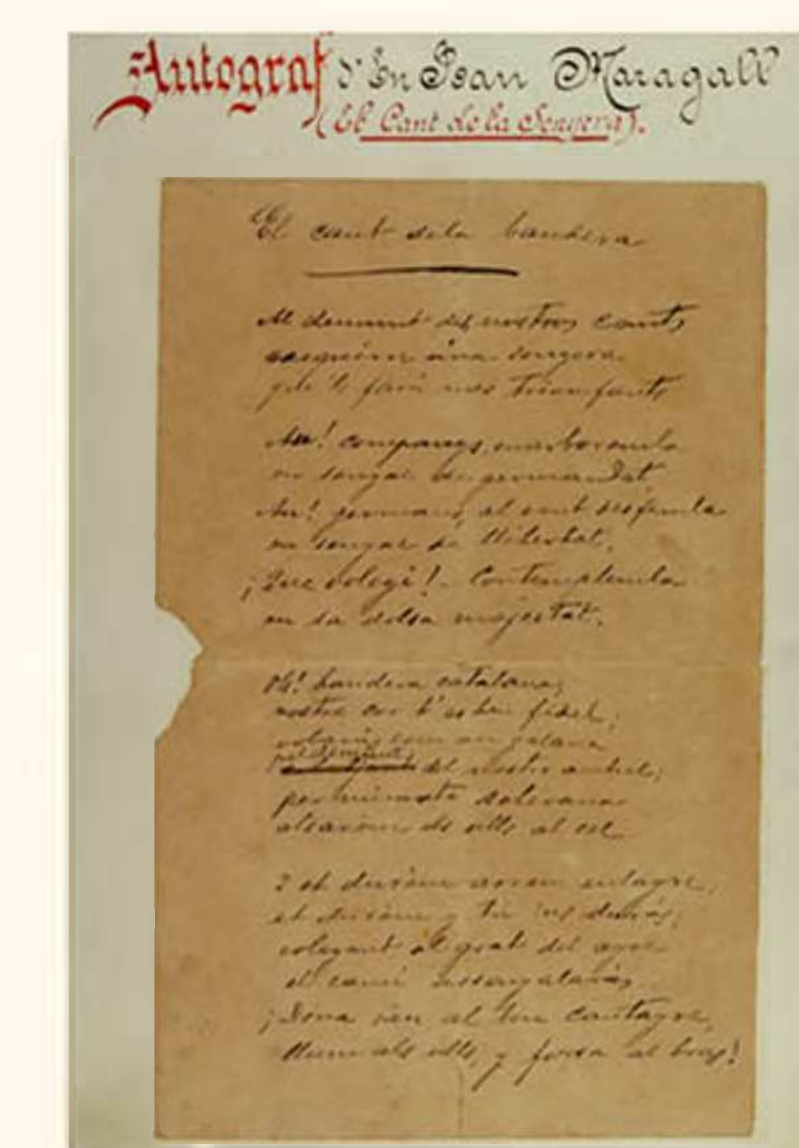 Autograf d'En Joan Maragall
(El Cant de la Senyera).
El cant de la bandera
Al demunt dels nostres cants
aixequèm una senyera
que'ls farà mes triomfants
Au! companys, enarborèmla
en senyal de germandat.
Au! germans, al vent desfèmla
en senyal de llibertat.
¡Que voleyi! Contemplèmla
en sa dolsa majestat.
Oh! bandera catalana,
nostre cor t'es ben fidel;
volaràs com au galana
pel demunt
del nostre anhel;
per mirarte sobirana
alsarèm els ulls al cel.
I et durèm arreu enlayre,
et durèm y tu 'ns duràs;
voleyant al grat del ayre
el camí assenyalaràs.
¡Dona veu al teu cantayre,
llum als ulls, y forsa al bras!